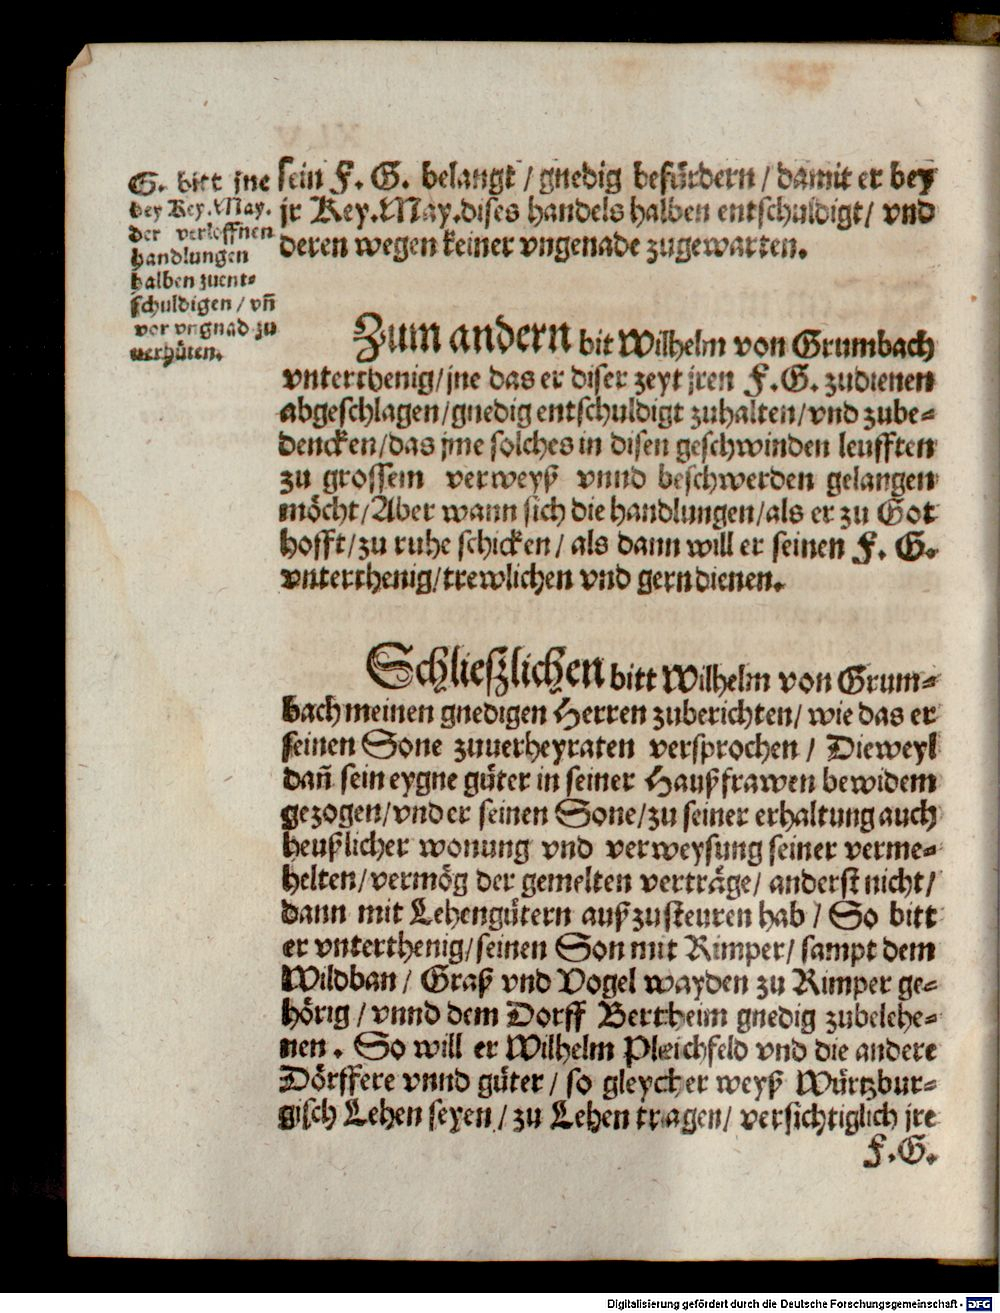 G. bitt jne
bey Key.May.
der verloffnen
handlungen
halben zuent-
schuldigen / vñ
vor vngnad zu
uerhüten.
sein F. G. belangt / gnedig befürdern / damit er bey
jr Key.May.dises handels halben entschuldigt/ vnd
deren wegen keiner vngenade zugewarten.
Zum andern bit Wilhelm von Grumbach
vnterthenig/jne das er diser zeyt jren F.G. zudienen
abgeschlagen/gnedig entschuldigt zuhalten/vnd zube-
dencken/das jme solches in disen geschwinden leufften
zu grossem verweyß vnnd beschwerden gelangen
möcht/Aber wann sich die handlungen/als er zu Got
hofft/zu ruhe schicken / als dann will er seinen F. G.
vnterthenig/trewlichen vnd gern dienen.
Schließlichen bitt Wilhelm von Grum-
bach meinen gnedigen Herren zuberichten/ wie das er
seinen Sone zuuerheyraten versprochen / Dieweyl
dañ sein eygne güter in seiner Haußfrawen bewidem
gezogen/vnd er seinen Sone/zu seiner erhaltung auch
heußlicher wonung vnd verweysung seiner verme-
helten/vermög der gemelten verträge/ anderst nicht/
dann mit Lehengütern außzusteuren hab / So bitt
er vnterthenig/seinen Son mit Rimper/ sampt dem
Wildban / Graß vnd Vogel wayden zu Rimper ge-
hörig / vnnd dem Dorff Bertheim gnedig zubelehe-
nen . So will er Wilhelm Pleichfeld vnd die andere
Dörffere vnnd güter / so gleycher weyß Würtzbur-
gisch Lehen seyen / zu Lehen tragen/ versichtiglich jre
F.G.
Digitalisierung gefördert durch die Deutsche Forschungsgemeinschaft - DFG